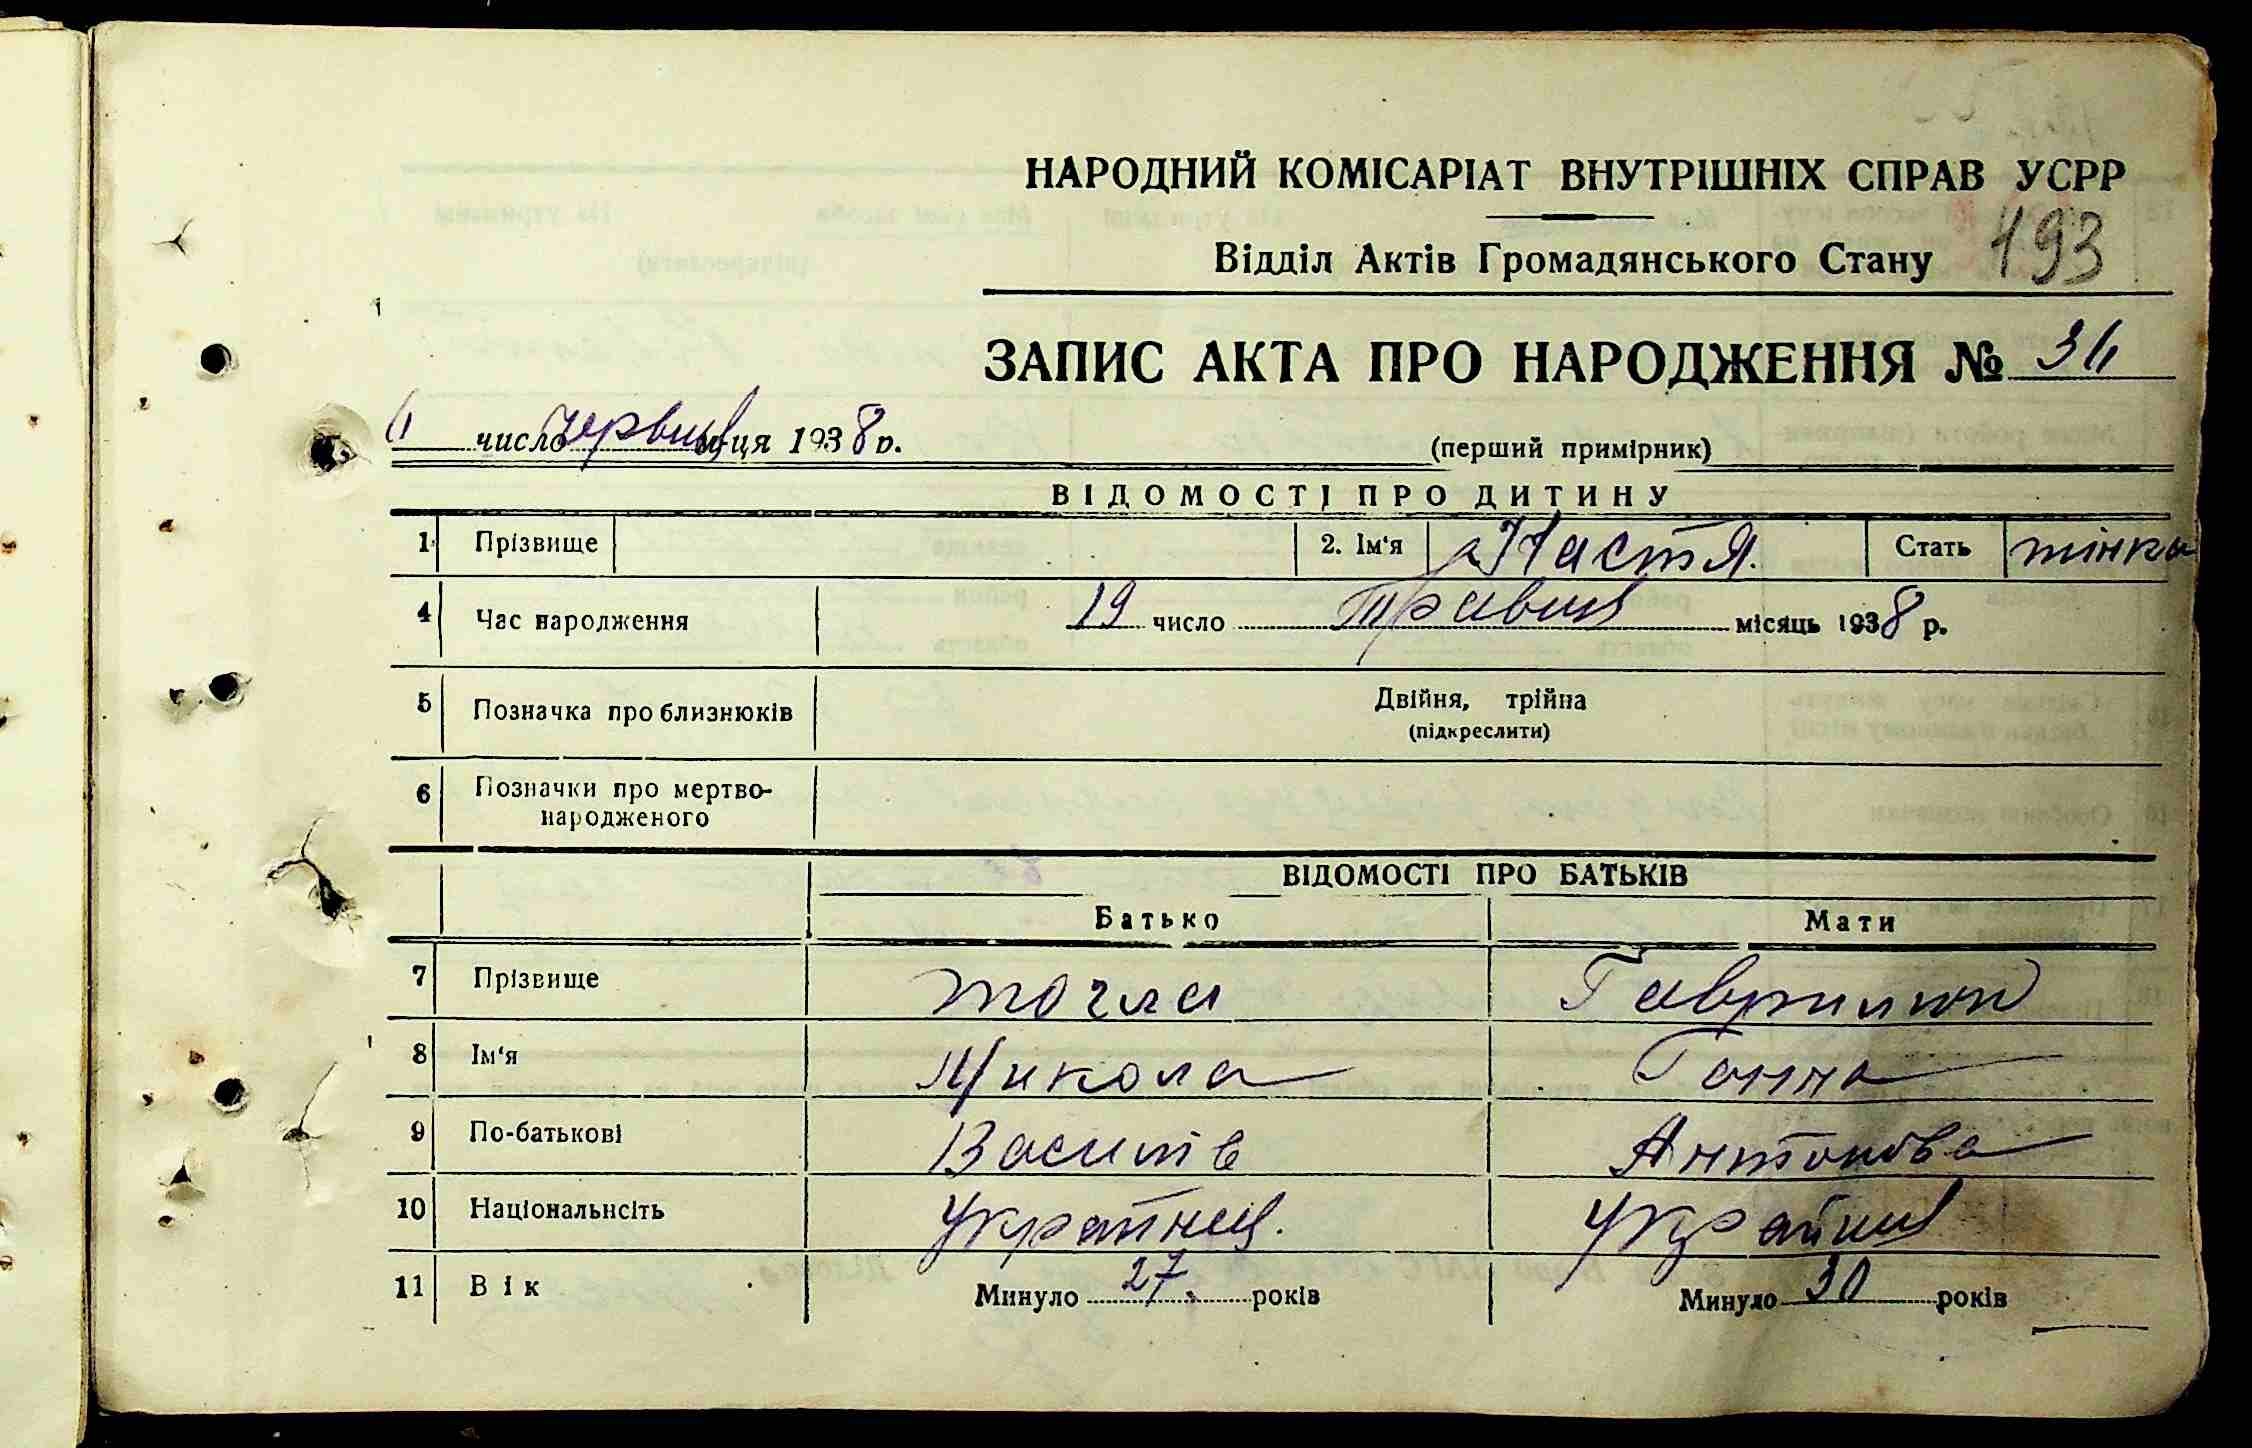 НАРОДНИЙ КОМІСАРІАТ ВНУТРІШНІХ СПРАВ УСРР
Відділ Актів Громадянського Стану 193
ЗАПИС АКТА ПРО НАРОДЖЕННЯ №
число червня м-ця 1938 р.
(перший примірник)
ВІДОМОСТІ ПРО ДИТИНУ
1 Прізвище 2. Ім'я Настя. Стать жінка
4 Час народження 19 число травня місяць 1938 р.
5 Позначка про близнюків Двійня, трійна
(підкреслити)
6 Позначки про мертво-
народженого
ВІДОМОСТІ ПРО БАТЬКІВ
Батько Мати
7 Прізвище Гаврилюк
8 Ім'я Микола Ганна
9 По-батькові Василів Антонова
10 Національнсіть Українец. Україна
11 Вік Минуло 27 років Минуло 30 років